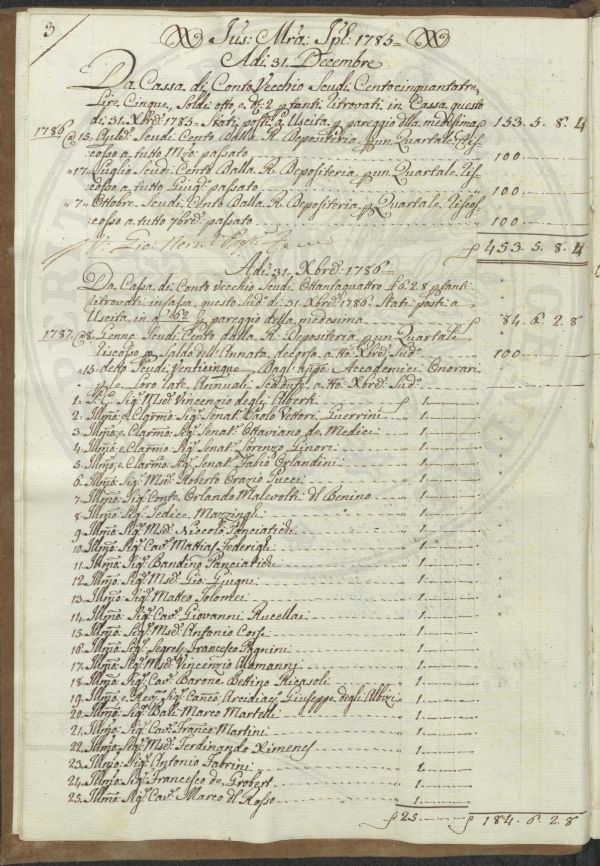 3
Jus: Mra: Jpl: 1785=
Adi 31. Decembre
Da Cassa di Conto Vecchio Scudi Centocinquantatre,
Lire Cinque, Soldi otto e d: 2 p tanti ritrovati in Cassa questo
di 31. Xbre 1785= Stati posti a Uscita p pareggio dlla medesima 153. 5. 8. 4
1786 15. Aple Scudi Cento Dalla R. Depositeria p un Quartale Ris=
cosso a tutto Mzo: passato 100
" 17. Luglio Scudi Cento Dalla R. Depositeria p un Quartale Ris=
cosso a tutto Giugo: passato 100
" 7. Ottobre Scudi Cento Dalla R. Depositeria p Quartale Riscos=
cosso a tutto 7bre passato 100
453. 5. 8. 4
Adi 31. Xbre 1786=
Da Cassa di Conto Vecchio Scudi Ottantaquattro 6. 2. 8 p tanti
ritrovati in Cassa questo Sudo: di 31. Xbre 1786. Stati posti a
Uscita in p pareggio della medesima 84. 6. 2. 8
1787 8. Genno: Scudi Cento dalla R. Depositeria p un Quartale
riscosso p Saldo dell'Annata decorsa a tto: Xbre Sudo: 100
" 15 detto Scudi Venticinque Dagl' Accademici Onorari
p le Loro Tate Annuali Scadute a tto: Xbre Sudo:
1. Sigr: Mse: Vincenzio degli Alberti 1
2. Illmo: e Clarmo: Sigr: Senatr: Paolo Vettori Guerrini 1
3. Illmo: e Clarmo: Sigr: Senatr: Ottaviano de Medici 1
4. Illmo: e Clarmo Sigr: Senatr: Lorenzo Ginori 1
5. Illmo: e Clarmo: Sigr: Senatr: Fabio Orlandini 1
6. Illmo: Sigr: Mse: Roberto Orazio Pucci 1
7. Illmo: Sigr: Conte Orlando Malevolti dl Benino 1
8. Illmo: Sigr: Fedice Mazzinghi 1
9. Illmo: Sigr: Mse: Niccolò Panciatichi 1
10. Illmo: Sigr: Cavr: Mattias Federighi 1
11. Illmo: Sigr: Bandino Panciatichi 1
12. Illmo: Sigr: Mse: Gio: Giugni 1
13. Illmo: Sigr: Matteo Tolomei 1
14. Illmo: Sigr: Cavr: Giovanni Rucellai 1
15. Illmo: Sigr: Mse: Antonio Corsi 1
16. Illmo: Sigr: Segreto: Francesco Pagnini 1
17. Illmo: Sigr: Mse: Vincenzio Alamanni 1
18. Illmo: Sigr: Cavr: Barone Bettino Ricasoli 1
19. Illmo: e Revmo: Sigr: Canco: Arcidiaco: Giuseppe degli Albizi 1
20. Illmo: Sigr: Balì Marco Martelli 1
21. Illmo: Sigr: Cavr: Franco: Martini 1
22. Illmo: Sigr: Mse: Ferdinando Ximenes 1
23. Illmo: Sigr: Antonio Fabrini 1
24. Illmo: Sigr: Francesco de Grobert 1
25. Illmo: Sigr: Cavr: Marco dl Rosso 1
25 184. 6. 2. 8